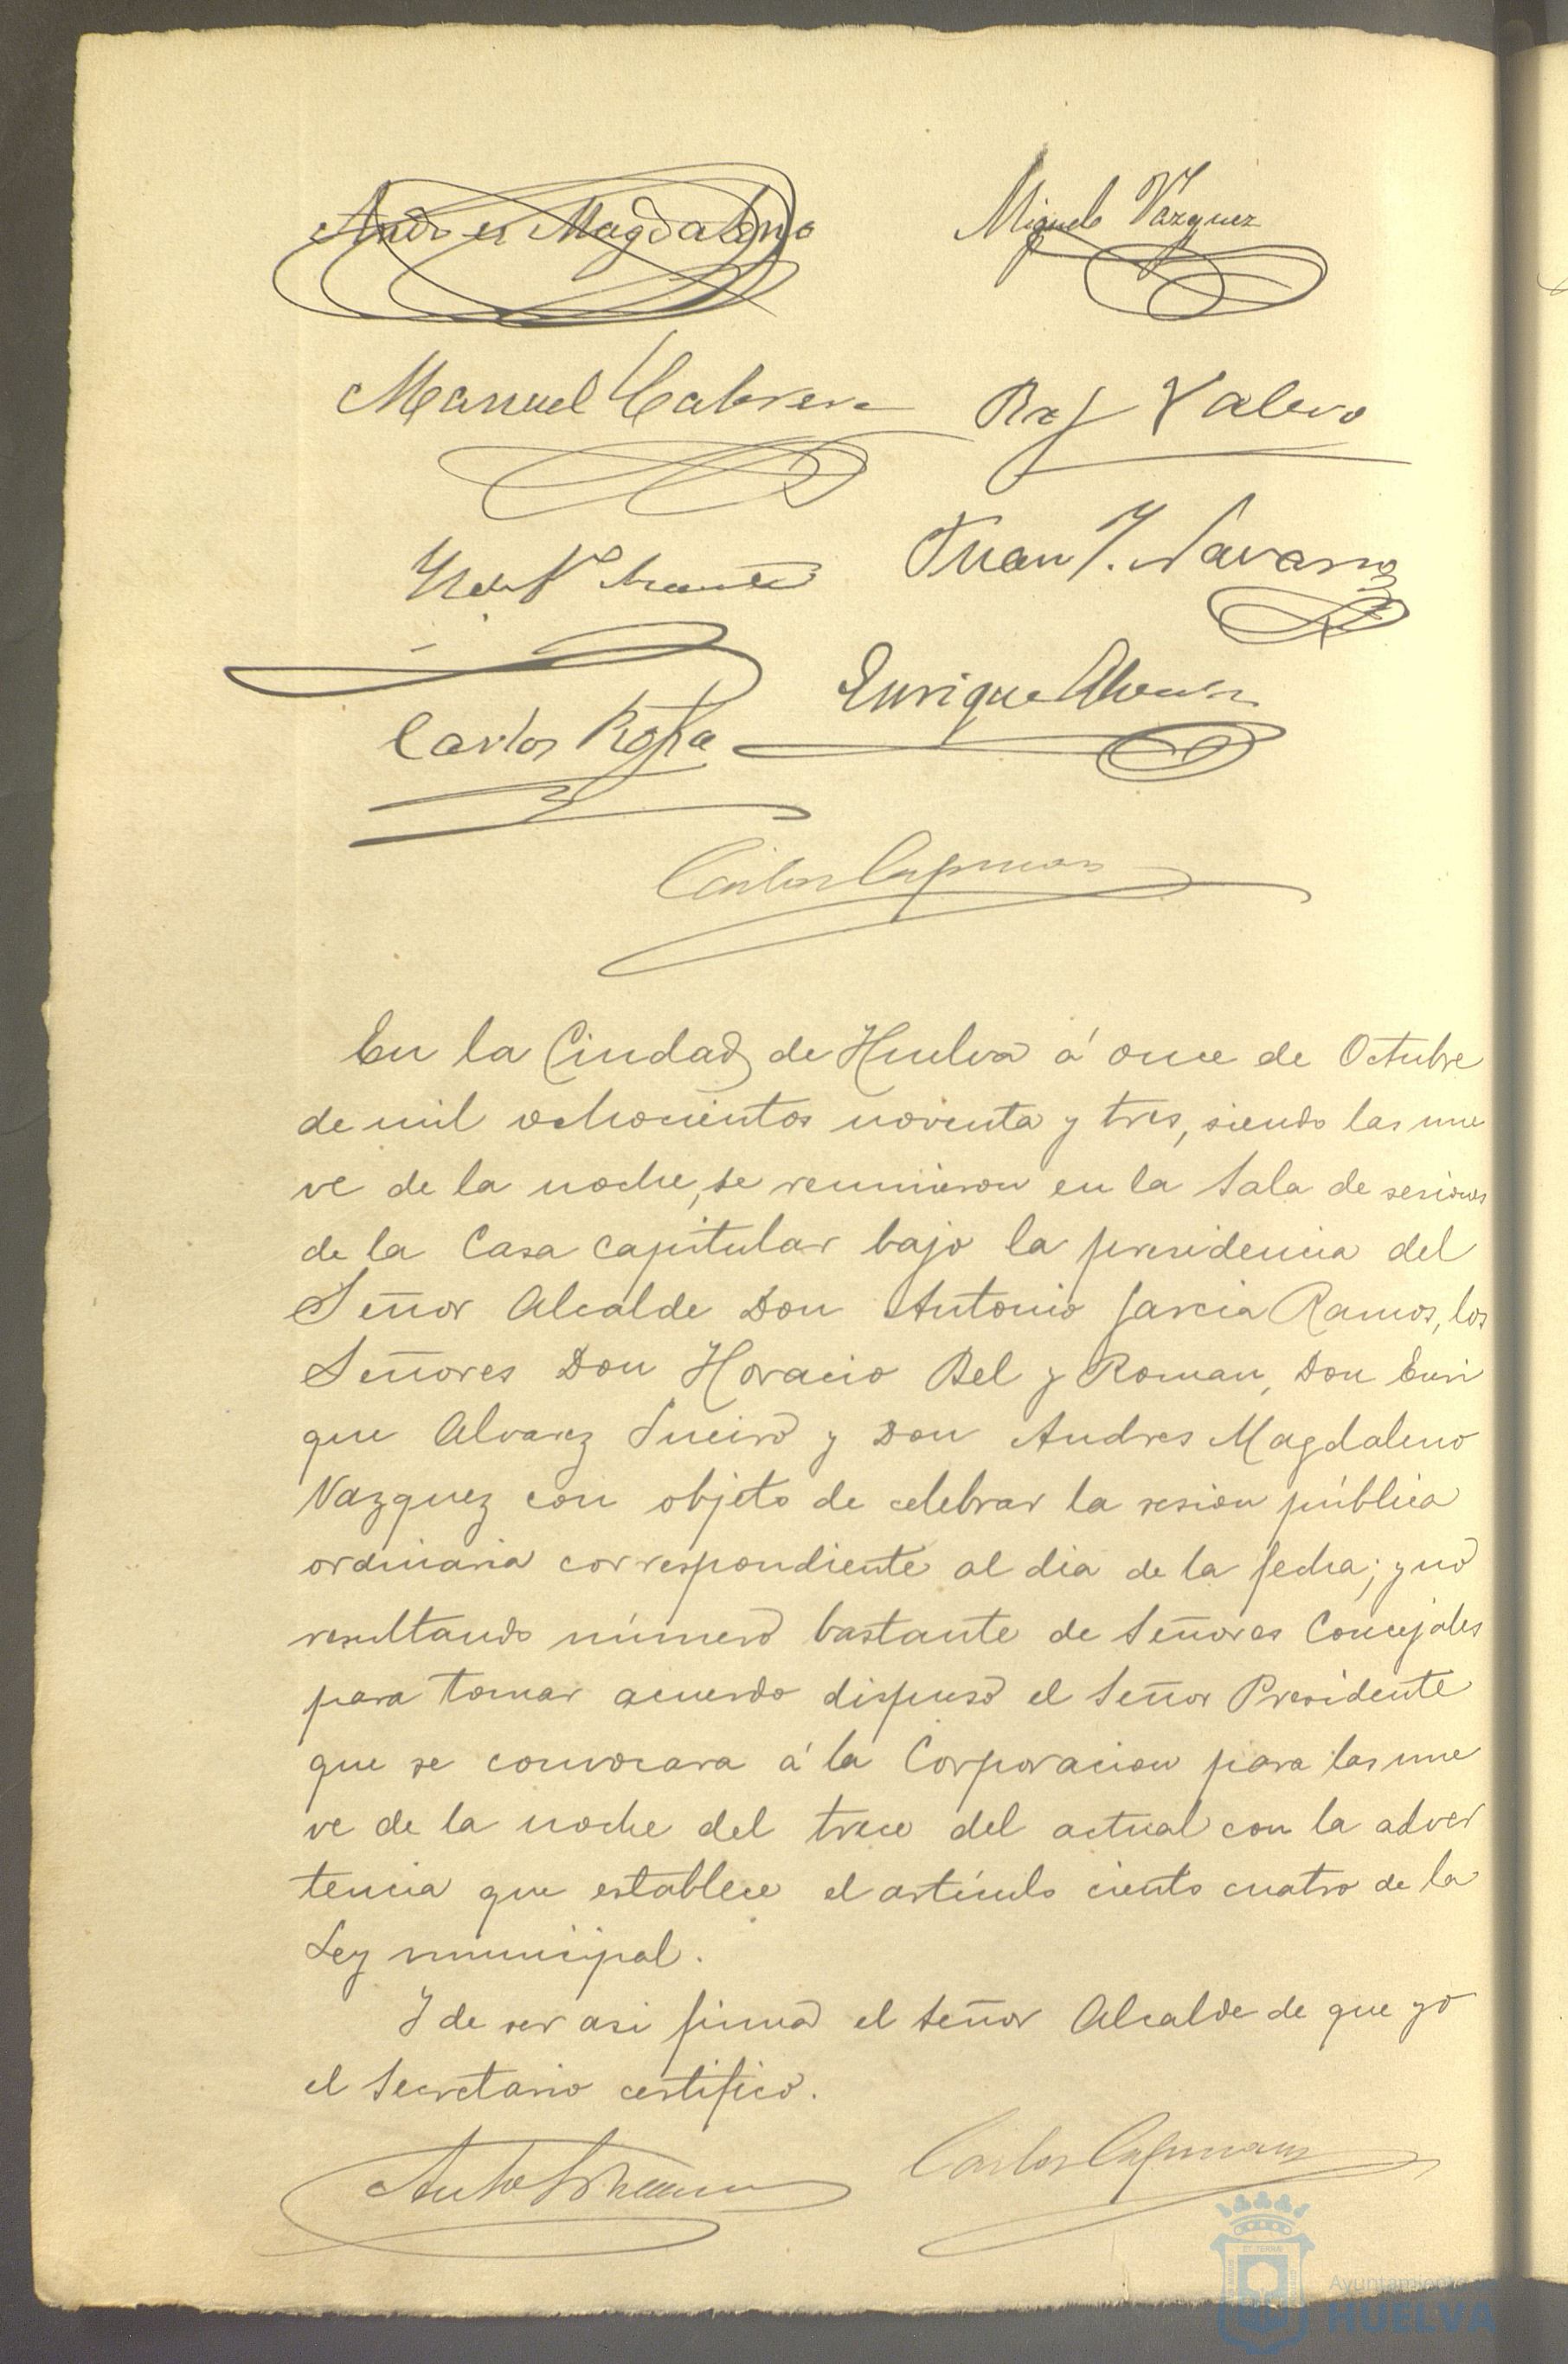 Andres Magdaleno
Miguel Vazquez
Manuel Cabrera
Raf Valero
Juan J. Navarro
Enrique Alvarez
Carlos
Carlos
En la Ciudad de Huelva á once de Octubre
de mil ochocientos noventa y tres, siendo las nue
ve de la noche, se reunieron en la Sala de sesiones
de la Casa Capitular bajo la presidencia del
Señor Alcalde Don Antonio Garcia Ramos, los
Señores Don Horacio Bel y Roman, Don Enri
que Alvarez Sueiro y Don Andres Magdaleno
Vazquez con objeto de celebrar la sesion pública
ordinaria correspondiente al dia de la fecha; y no
resultando número bastante de Señores Concejales
para tomar acuerdo dispuso el Señor Presidente
que se convocara á la Corporacion para las nue
ve de la noche del trece del actual con la adver
tencia que establece el artículo ciento cuatro de la
Ley municipal.
Y de ser asi firma el Señor Alcalde de que yo
el Secretario certifico.
Carlos
Ayuntamiento
HUELVA